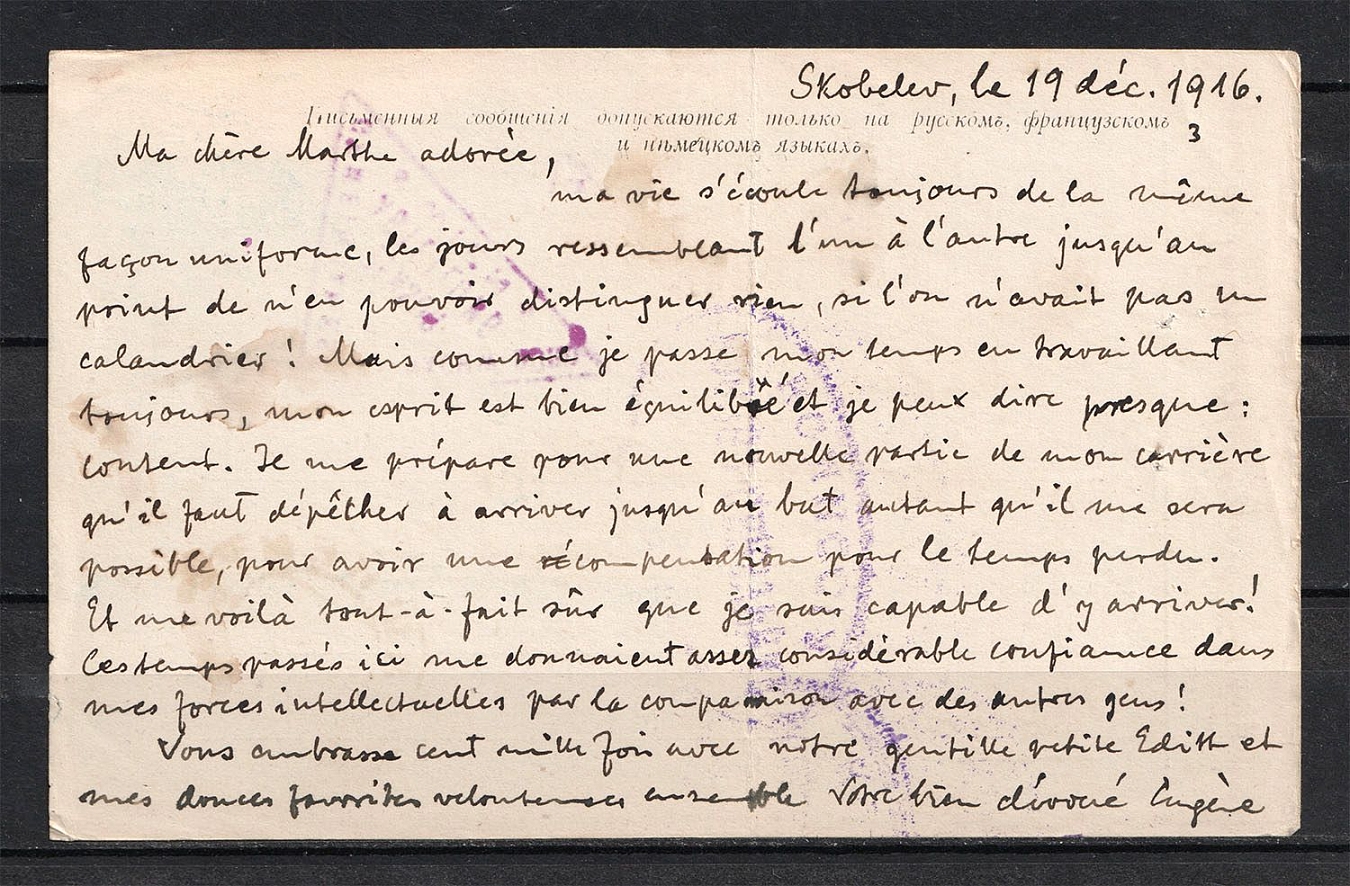 Skobelev, le 19 déc. 1916.
Письменныя сообщенія допускаются только на русскомъ, французскомъ
и нѣмецкомъ языкахъ.
3
Ma chère Marthe adorée,
ma vie s'écoule toujours de la même
façon uniforme, les jours ressemblant l'un à l'autre jusqu'au
point de n'en pouvoir distinguer rien, si l'on n'avait pas un
calandrier! Mais comme je passe mon temps en travaillant
toujours, mon esprit est bien équilibré et je peux dire presque:
content. Je me prépare pour une nouvelle partie de mon carrière
qu'il faut dépêther à arriver jusqu'au but autant qu'il me sera
possible, pour avoir une récompensation pour le temps perdu.
Et me voilà tout-à-fait sûr que je suis capable d'y arriver!
Ces temps passés ici me donnaient assez considérable confiance dans
mes forces intellectuelles par la comparaison avec des autres gens!
Vous embrasse cent mille fois avec notre gentille petite Edith et
mes douces favorites veloutenses ensemble Votre bien dévoué Eugène